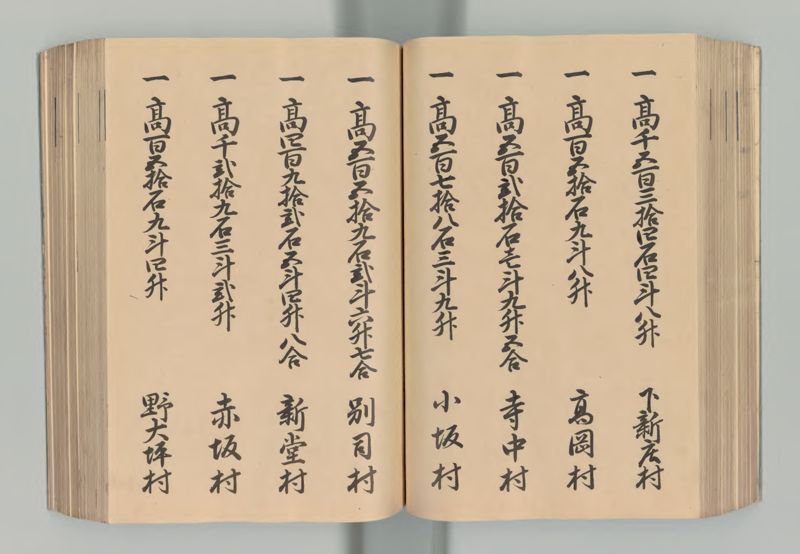 一 高千五百三拾四石四斗八升 下新庄村
一 高百五拾石九斗八升 高岡村
一 高五百弐拾石壱斗九升五合 寺中村
一 高五百七拾八石三斗九升 小坂村
一 高五百五拾九石弐斗六升七合 別司村
一 高四百九拾弐石五斗四升八合 新堂村
一 高千弐拾九石三斗弐升 赤坂村
一 高百五拾石九斗四升 野大坪村